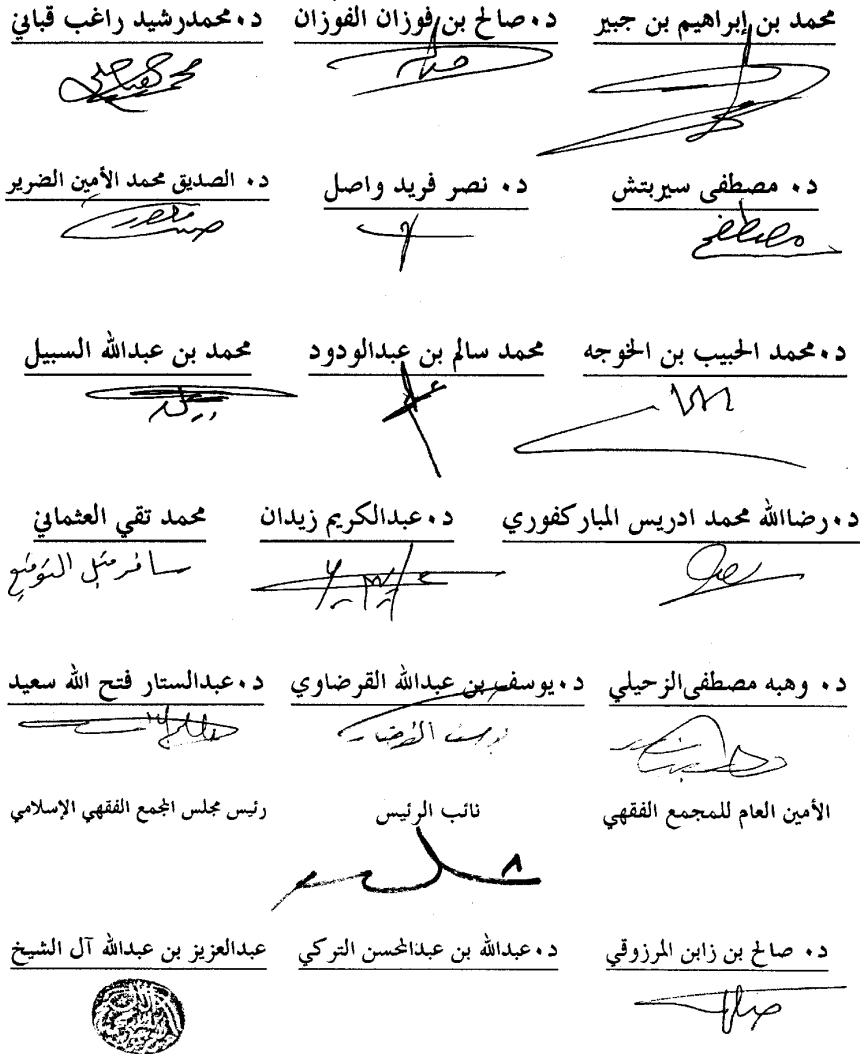 محمد بن إبراهيم بن جبير د. صالح بن فوزان الفوزان د. محمدرشيد راغب قباني
د. مصطفى سيربتش د. نصر فريد واصل د. الصديق محمد الأمين الضرير
مصطفى
د. محمد الحبيب بن الخوجه محمد سالم بن عبدالودود محمد بن عبدالله السبيل
د. رضاالله محمد ادريس المباركفوري د. عبدالكريم زيدان محمد تقي العثماني
سافر قبل التوقيع
د. وهبه مصطفى الزحيلي د. يوسف بن عبدالله القرضاوي د. عبدالستار فتح الله سعيد
الأمين العام للمجمع الفقهي نائب الرئيس رئيس مجلس المجمع الفقهي الإسلامي
د. صالح بن زابن المرزوقي د. عبدالله بن عبدالمحسن التركي عبدالعزيز بن عبدالله آل الشيخ